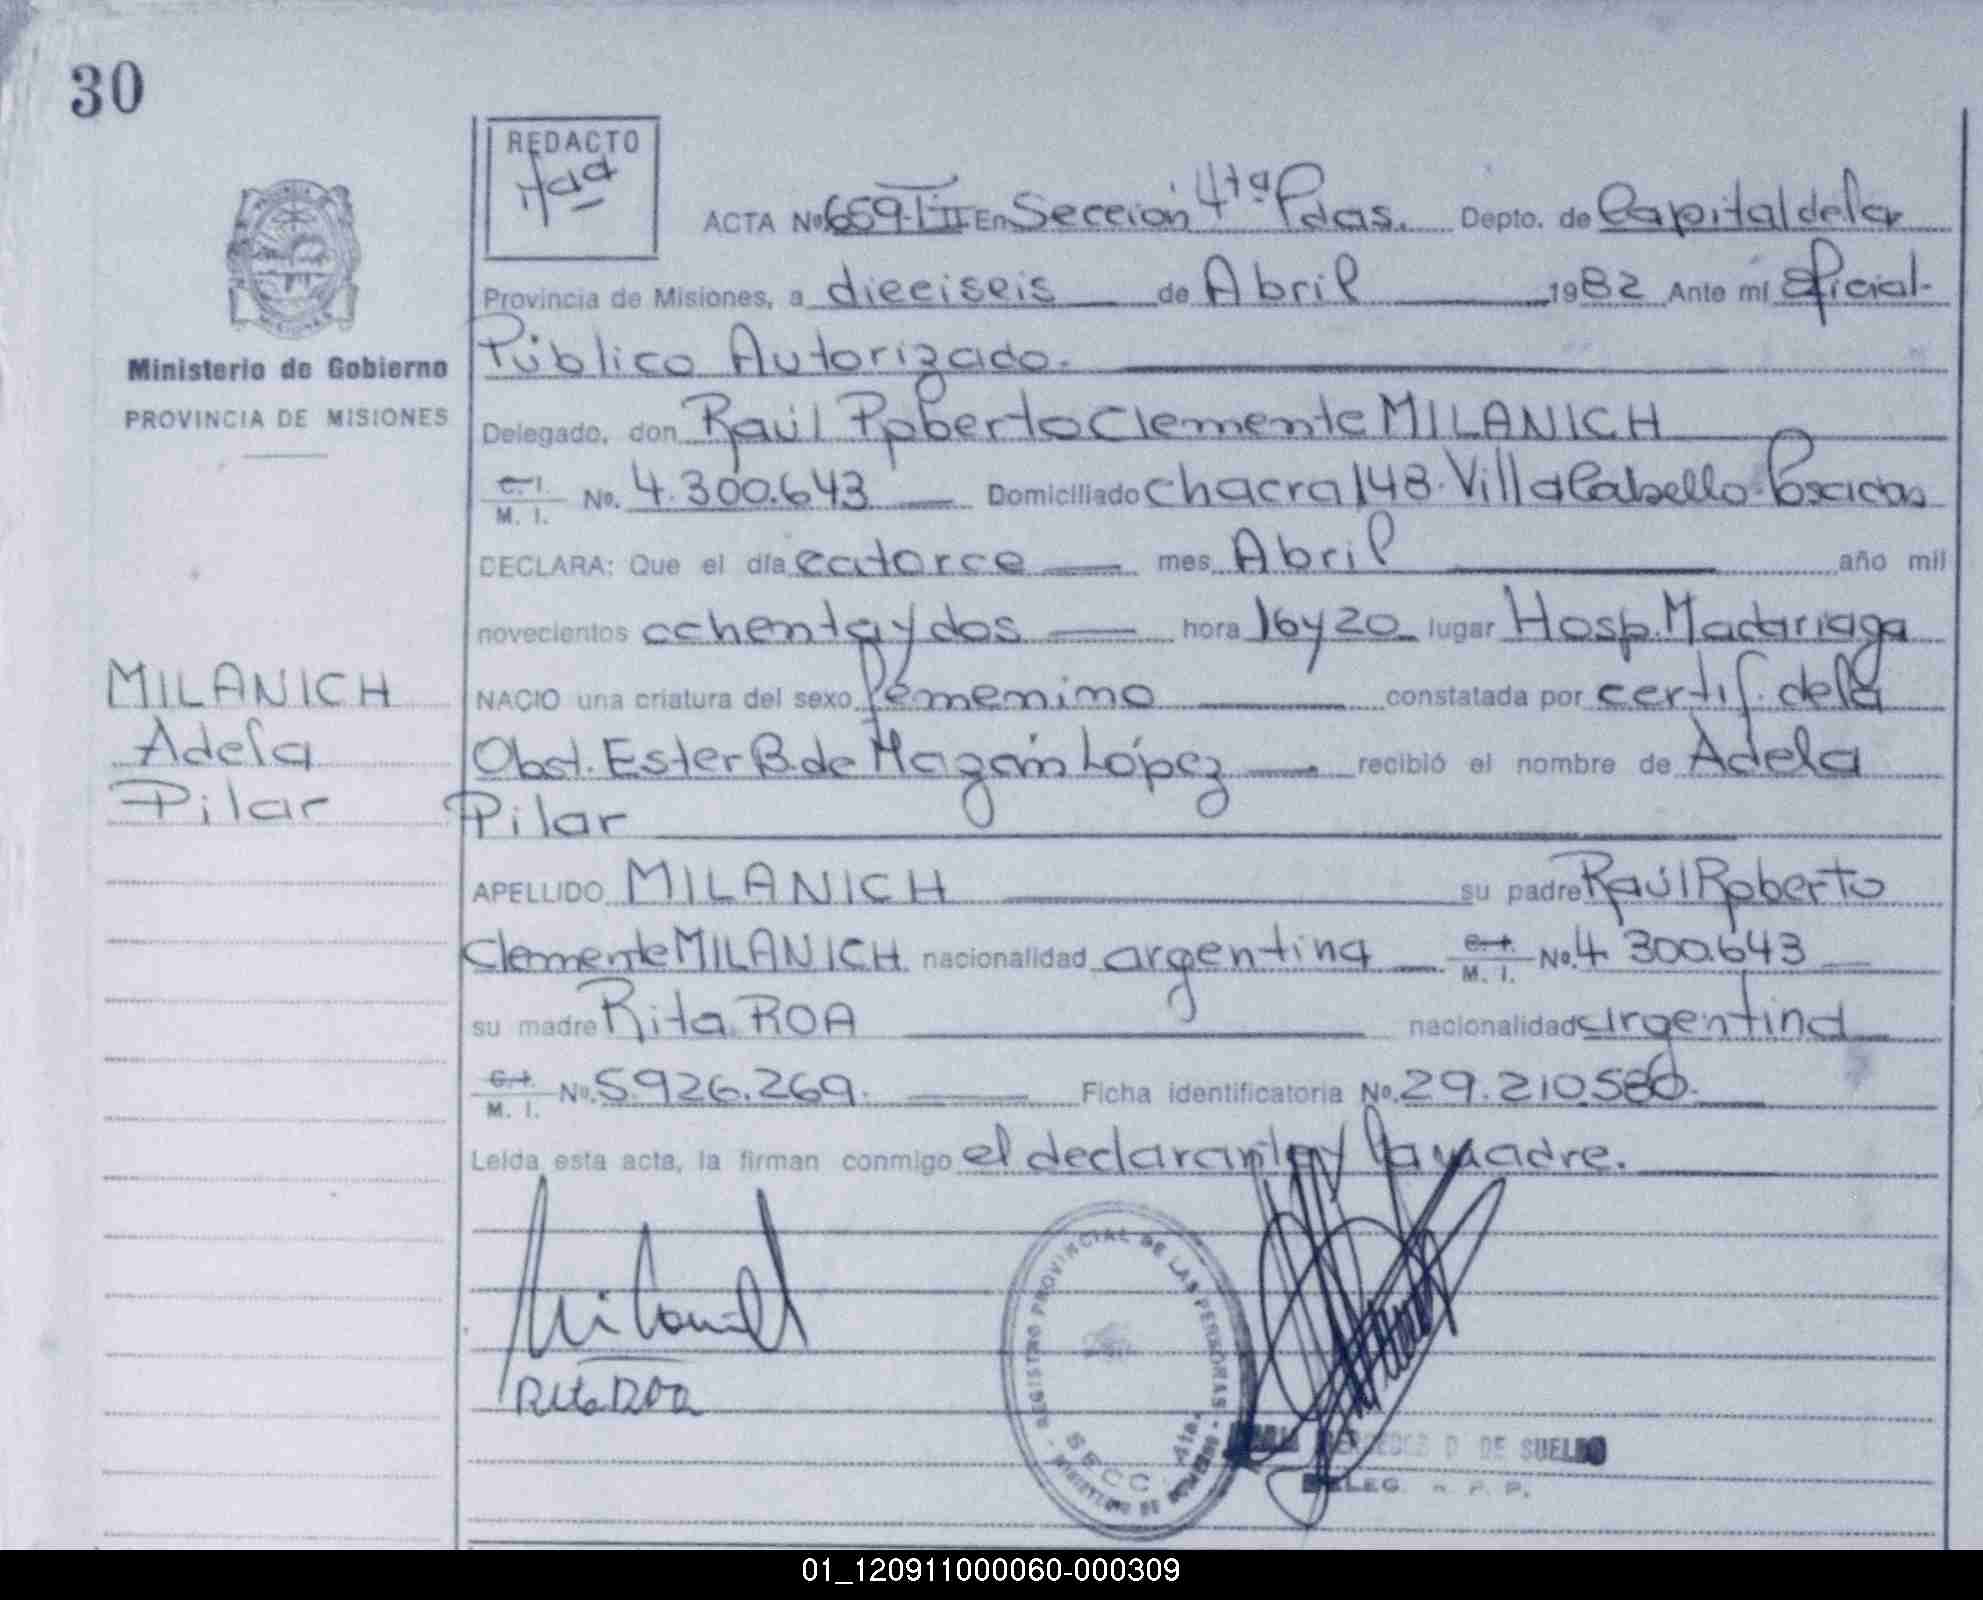 30
REDACTO
ACTA Nº 659-T-II En Sección 4ta Pdas. Depto. de Capital de la
Provincia de Misiones, a dieciseis de Abril 1982 Ante mí Oficial
Público Autorizado.
Ministerio de Gobierno
PROVINCIA DE MISIONES
Delegado, don Raúl Roberto Clemente MILANICH
C. I. M. I. No. 4.300.643 Domiciliado chacra 148. Villa Cabello. Posadas
DECLARA: Que el día catorce mes Abril año mil
novecientos ochenta y dos hora 16 y 20 lugar Hosp. Madariaga
NACIO una criatura del sexo femenino constatada por certif. de la
Obst. Ester B. de Mazón López recibió el nombre de Adela
Pilar
MILANICH
Adela
Pilar
APELLIDO MILANICH su padre Raúl Roberto
Clemente MILANICH nacionalidad argentina C. I. M. I. No. 4.300.643
su madre Rita ROA nacionalidad argentina
C. I. M. I. No. 5.926.269. Ficha identificatoria No. 29.210.580.
Leída esta acta, la firman conmigo el declarante y la madre.
Milanich
Rita ROA
REGISTRO PROVINCIAL DE LAS PERSONAS
SECC. 4ta.
D. DE SUELDO
DELEG. R. P. P.
01_120911000060-000309